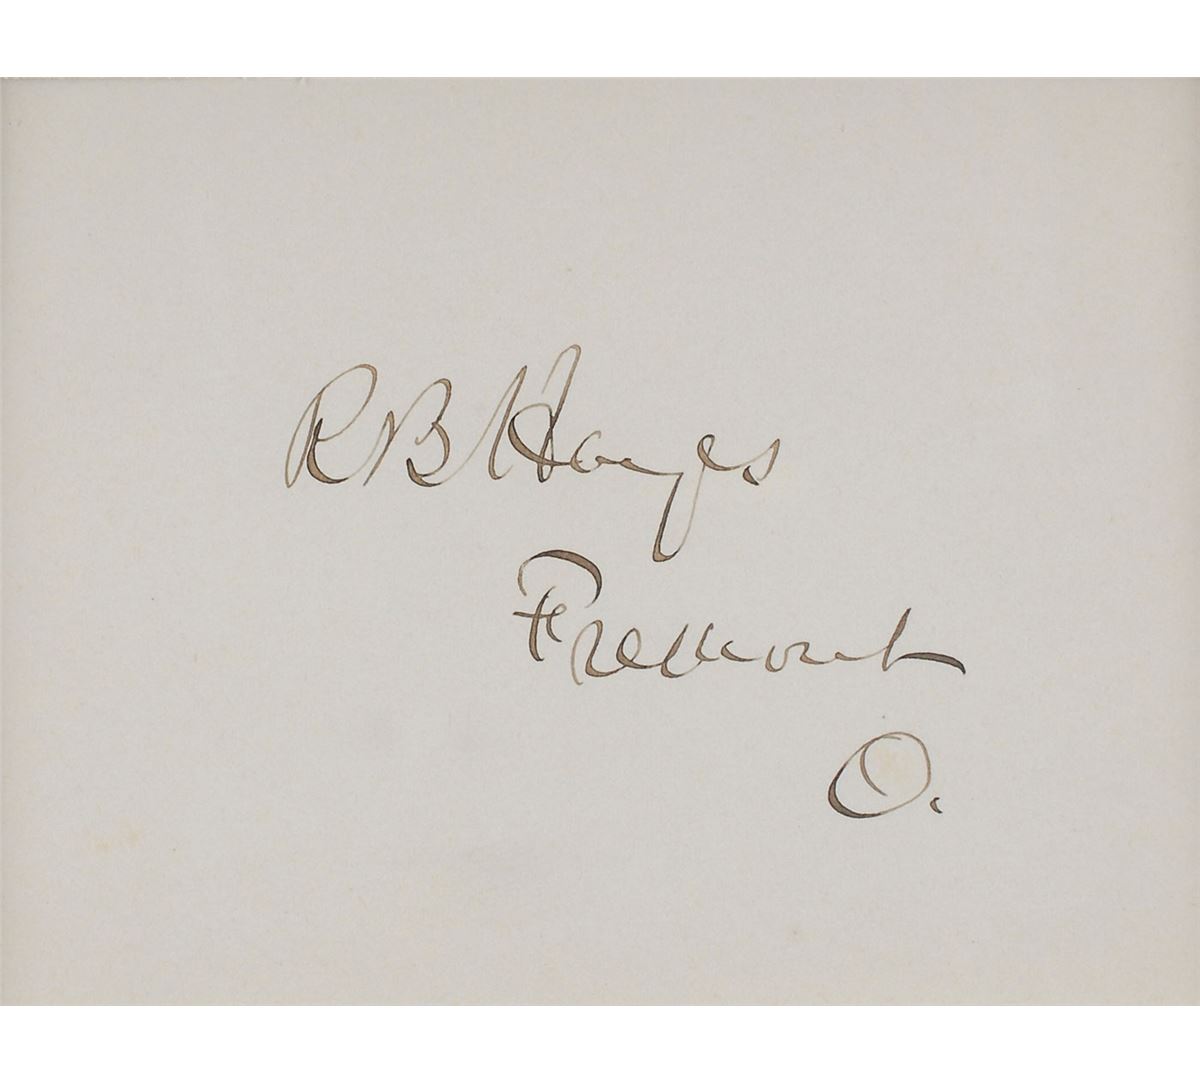 R B Hayes
Fremont
O.